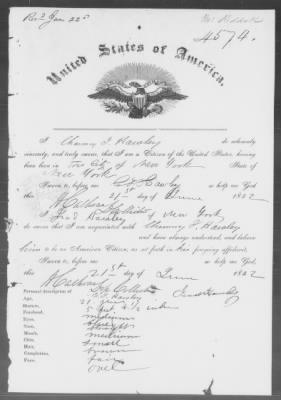 Rec'd Jan 22d
4574.
United States of America.
I Chauncy F. Hawley do solemnly,
sincerely, and truly swear, that I am a Citizen of the United States, having
been born in the City of New York State of
New York
Sworn to, before me So help me God
21st day of
I Fred Hawley of New York
do swear that I am acquainted with Chauncy F. Hawley
and have always understood, and believe
him to be an American Citizen, as set forth in his foregoing affidavit.
Sworn to, before me, So help me God,
21st day of 18
Fred Hawley
Personal description of C. F. Hawley
Age, 21 years
Stature, 5 feet inches
Forehead, medium
Eyes,
Nose, straight
Mouth, medium
Chin, small
Hair, brown
Complexion, fair
Face, oval